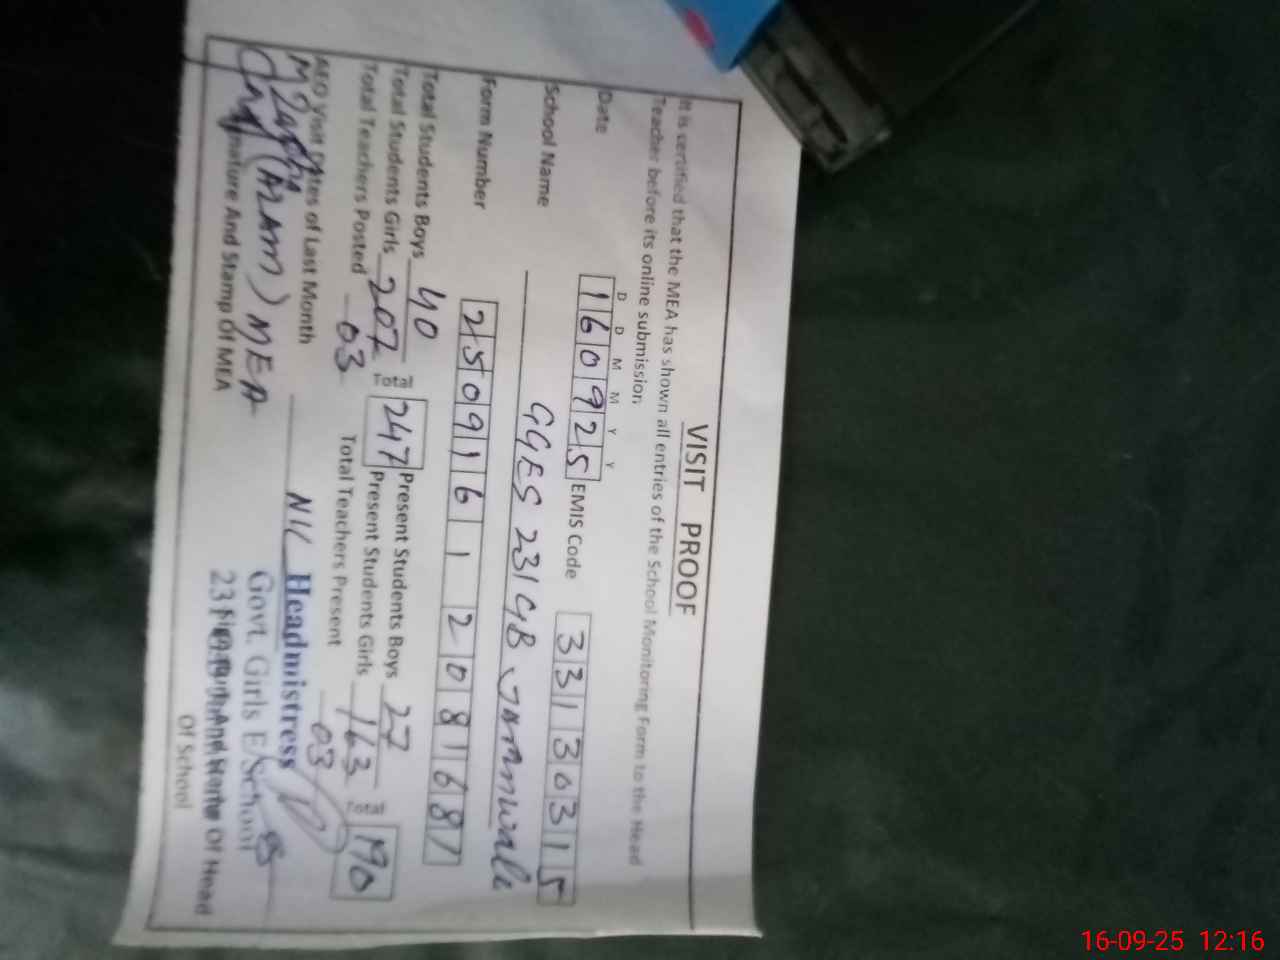 VISIT PROOF
It is certified that the MEA has shown all entries of the School Monitoring Form to the Head
Teacher before its online submission
D D M M Y Y
Date 160925 EMIS Code 33130315
School Name GGES 231GB Jaranwala
Form Number 25091612081687
Total Students Boys 40 Total 247 Present Students Boys 27 Total 190
Total Students Girls 207 Present Students Girls 163
Total Teachers Posted 03 Total Teachers Present 03
AEO Visit Dates of Last Month NIL
(AZAM) MEA
Signature And Stamp Of MEA
Headmistress
Govt. Girls E/School
Of Head
Of School
16-09-25 12:16